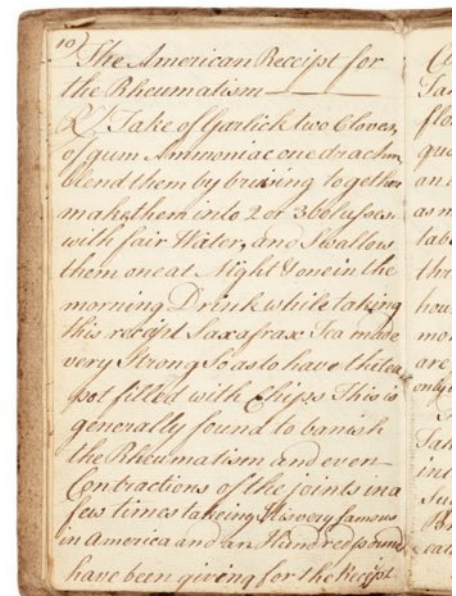 10)
The American Receipt for
the Rheumatism
Take of Garlick two Cloves,
of gum Ammoniac one drachm,
blend them by bruising together
make them into 2 or 3 bolusses
with fair Water, and Swallow
them one at Night & one in the
morning Drink while taking
this receipt Saxafrax Tea made
very Strong So as to have the tea
pot filled with Chips This is
generally found to banish
the Rheumatism and even
Contractions of the joints in a
few times takeing tis very famous
in America and an Hundred pound
have been giving for the Receipt